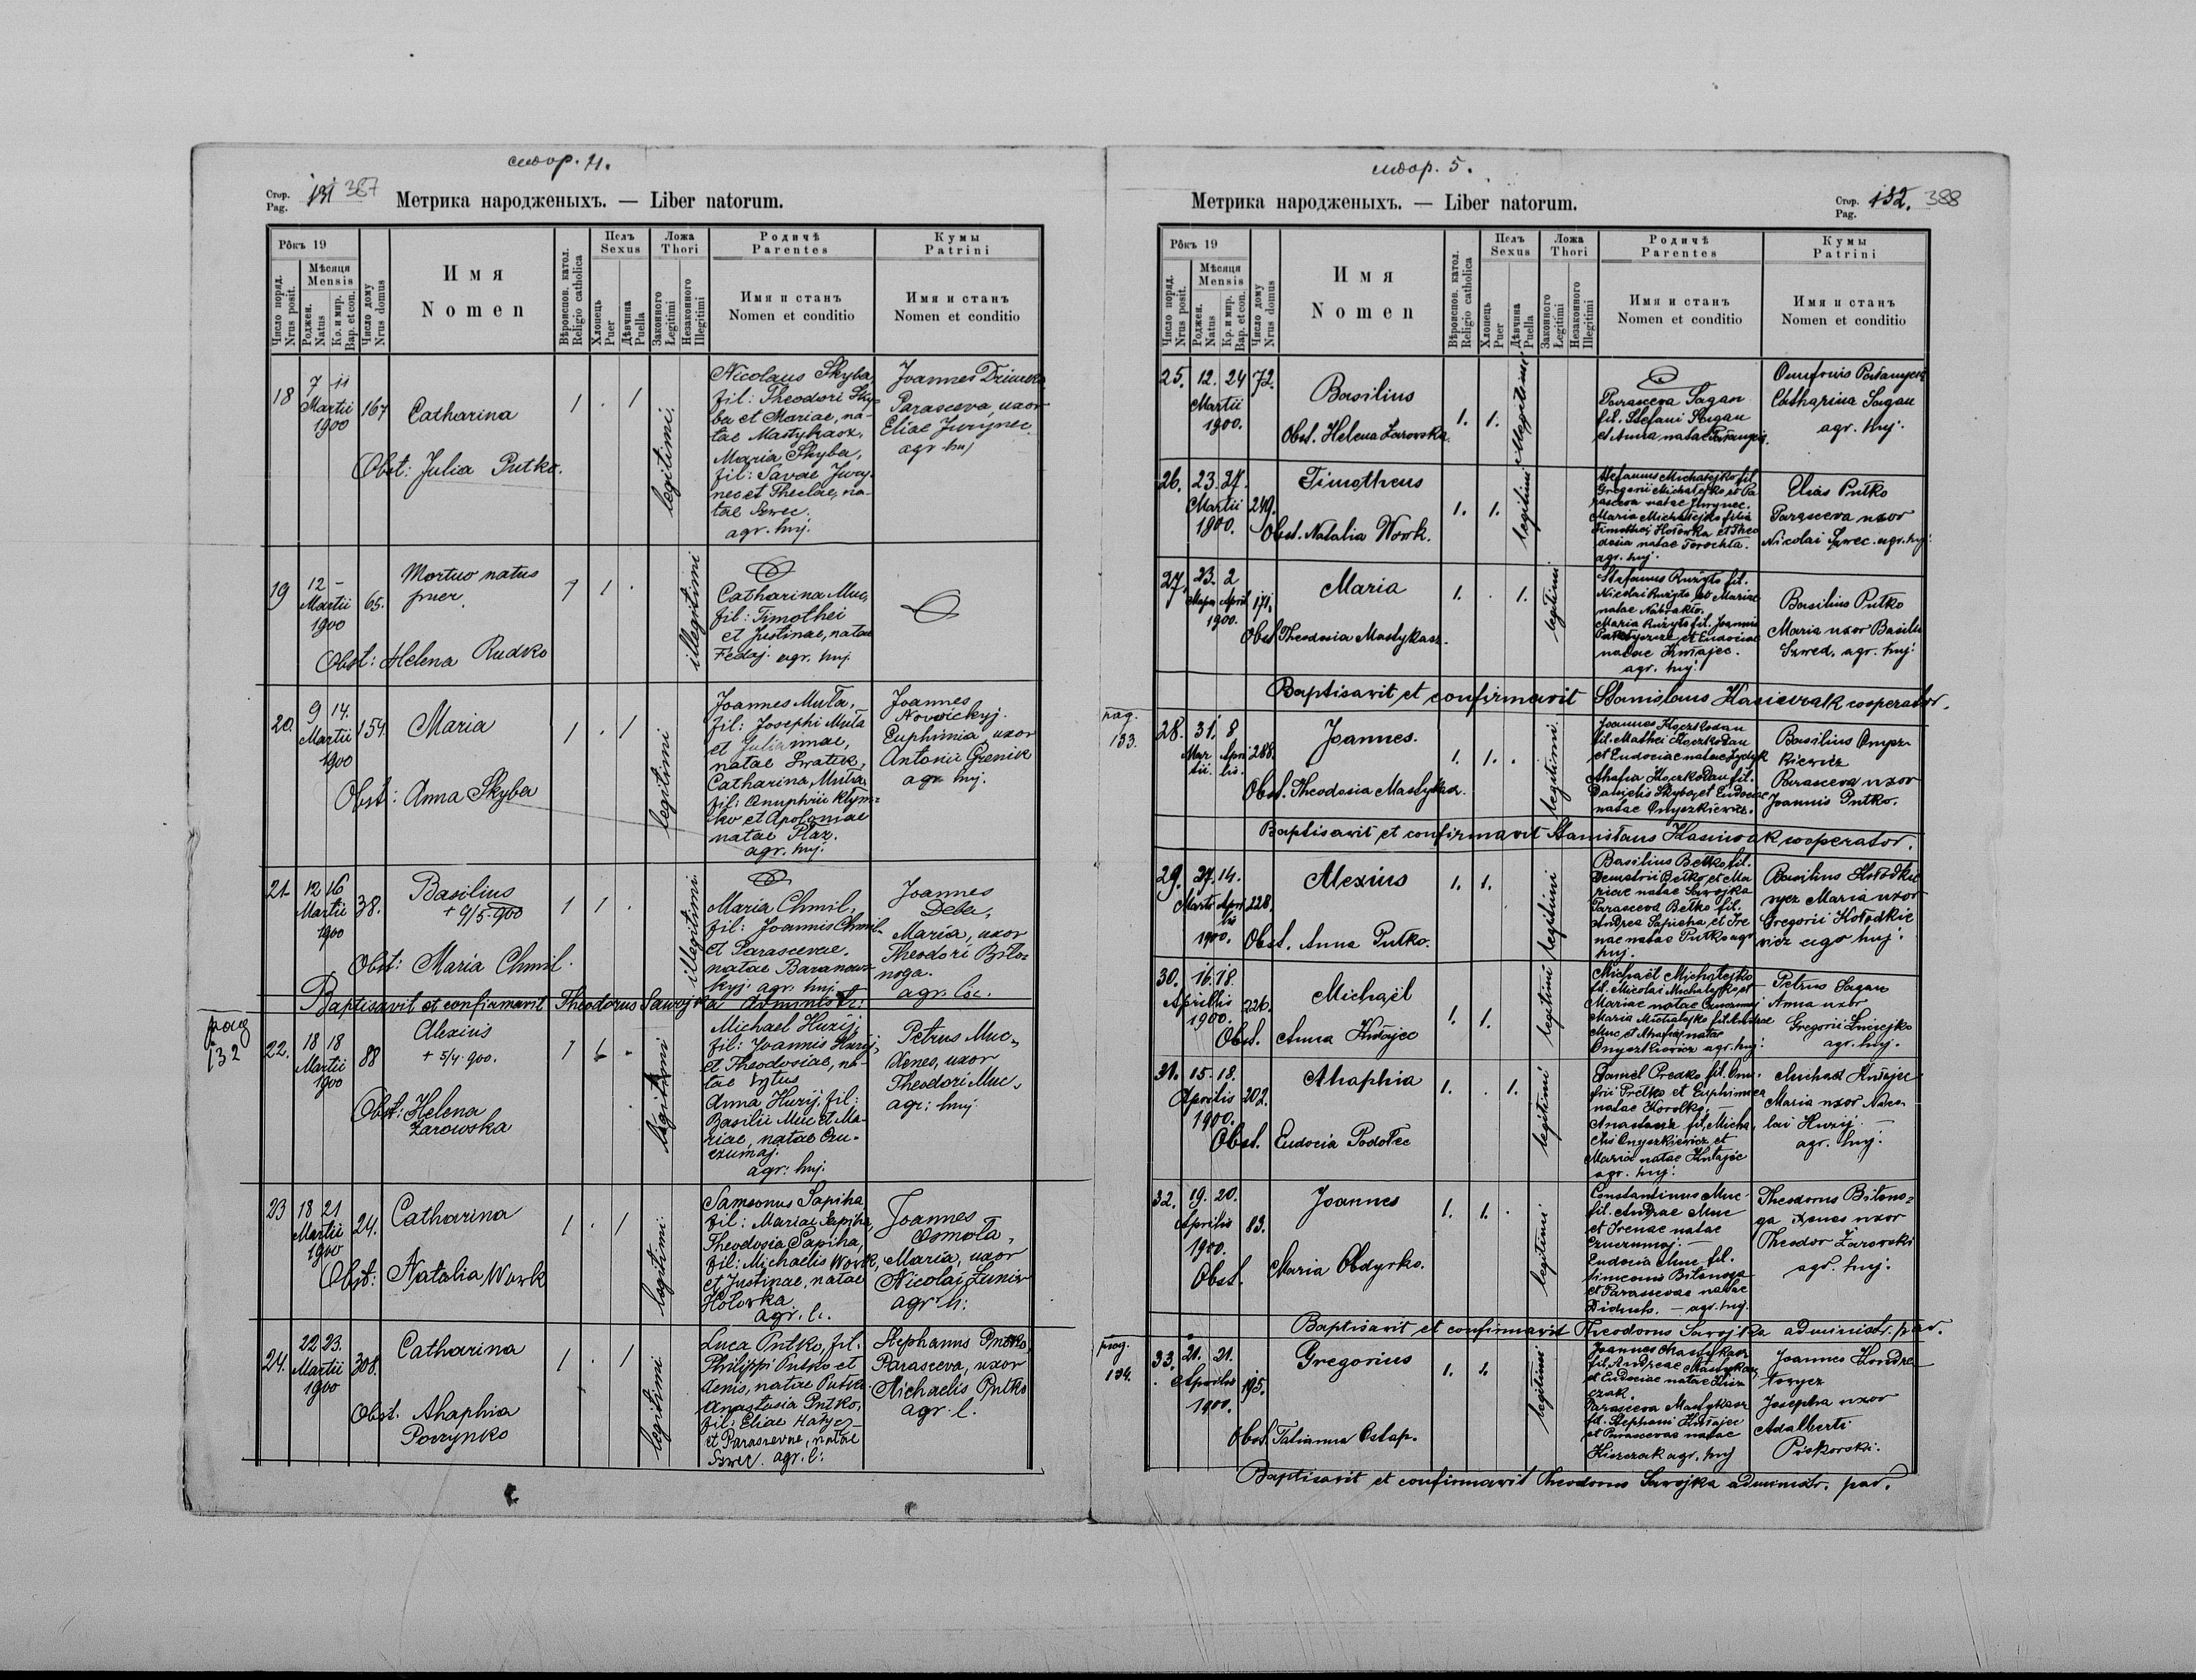 стор. 4.
Стор. Pag. 131 387
Метрика народженыхъ. — Liber natorum.
Рôкъ 19
Число поряд. Nrus posit.
Мѣсяця Mensis
Роджен. Natus
Кр. и мир. Bap. et con.
Число дому Nrus domus
Имя
Nomen
Вѣроиспов. катол. Religio catholica
Полъ Sexus
Хлопець Puer
Дѣвчина Puella
Ложа Thori
Законного Legitimi
Незаконного Illegitimi
Родичѣ Parentes
Имя и станъ
Nomen et conditio
Кумы Patrini
Имя и станъ
Nomen et conditio
18 7 11 Martii 1900 167 Catharina 1 . 1 legitimi.
Obst: Julia Putko.
Nicolaus Skyba,
fil: Theodori Sky-
ba et Mariae, na-
tae Mastykasz.
Maria Skyba,
fil: Savae Jury-
nec et Theclae, na-
tae Szwec.
agr. huj.
Joannes
Parasceva, uxor
Eliae Jurynec.
agr. huj
19 12 - Martii 1900 65. Mortuo natus
puer. 1 1 . illegitimi
Obst: Helena Rudko
Catharina Muc,
fil: Timothei
et Justinae, natae
Fedaj. agr. huj.
20. 9 14. Martii 1900 154. Maria 1 . 1 legitimi
Obst: Anna Skyba
Joannes Muła,
fil: Josephi Muła
et Juliannae,
natae
Catharina Muła,
fil: Onuphrii Klym=
ko et Apoloniae
natae Płaz.
agr. huj.
Joannes
Nowickyj.
Euphimia, uxor
Antonii Grenik
agr. huj.
21. 12 16 Martii 1900 38. Basilius
+ 9/5 900 1 1 . illegitimi
Obst: Maria Chmil.
Maria Chmil,
fil: Joannis Chmil
et Parascevae.
natae Baranows-
kyj. agr. huj.
Joannes
Deba,
Maria, uxor
Theodori Biło=
noga.
agr. loc.
Baptisavit et confirmavit Theodorus Sawojka administr:
pag 132
22. 18 18 Martii 1900 88 Alexius
+ 5/4 900. 1 1 - legitimi
Obst: Helena
Żarowska
Michael Huzij,
fil: Joannis Huzij,
et Theodosiae, na-
tae
Anna Huzij, fil:
Basilii Muc et Ma-
riae, natae Czu-
czumaj.
agr: huj.
Petrus Muc,
Xenes, uxor
Theodori Muc,
agr: huj
23 18 21 Martii 1900 24. Catharina 1 . 1 legitimi.
Obst: Natalia Wowk
Samsonus Sapiha
fil: Mariae Sapiha,
Theodosia Sapiha,
fil: Michaelis Wowk,
et Justinae, natae
Hołowka
agr. l.
Joannes
Osmoła,
Maria, uxor
Nicolai
agr h:
24. 22 23. Martii 1900 308. Catharina 1 . 1 legitimi
Obst. Ahaphia
Luca Putko, fil.
Philippi Putko et
Xenis, natae Putko
Anastasia Putko,
fil: Eliae
et Parascevae, natae
Szwec. agr. l:
Stephanus
Parasceva, uxor
Michaelis Putko
agr. l.
стор. 5.
Метрика народженыхъ. — Liber natorum.
Стор. Pag. 132. 388
Рôкъ 19
Число поряд. Nrus posit.
Мѣсяця Mensis
Роджен. Natus
Кр. и мир. Bap. et con.
Число дому Nrus domus
Имя
Nomen
Вѣроиспов. катол. Religio catholica
Полъ Sexus
Хлопець Puer
Дѣвчина Puella
Ложа Thori
Законного Legitimi
Незаконного Illegitimi
Родичѣ Parentes
Имя и станъ
Nomen et conditio
Кумы Patrini
Имя и станъ
Nomen et conditio
25. 12. 24 Martii 1900. 72. Basilius 1. 1. illegitimi
Obst. Helena Żarowska.
Parasceva Sagan
fil. Stefani Sagan
et Anna natae
Onufrius
Catharina Sagan
agr. huj.
26. 23. 27. Martii 1900. 249. Timotheus 1. 1. legitimi
Obst. Natalia Wowk.
Stefanus Michałejko fil.
Gregorii Michałejko et Pa
rasceva natae Jurynec.
Maria Michałejko filia
Timothei Hołowka et Theo
dosia natae Torochta.
agr. huj.
Elias Putko
Parasceva uxor
Nicolai Szwec. agr. huj.
27. 23. 2 April 1900. 171. Maria 1. . 1. legitimi
Obst Theodosia Mastykasz.
Stefanus Rużyło fil.
Nicolai Rużyło et Mariae
natae
Maria Rużyło fil. Joannis
et Eudociae
natae Kmajec.
agr. huj.
Basilius Putko
Maria uxor Basilii
Szwed. agr. huj.
Baptisavit et confirmavit Stanislaus cooperator.
pag. 133.
28. 31. 8 Martii. Aprilis. 288. Joannes. 1. 1. . legitimi.
Obst. Theodosia Mastykasz.
Joannes Koczkodan
fil. Mathei Koczkodan
et Eudociae natae
Ahafia Koczkodan fil.
Danielis Skyba, et Eudociae
natae Onyszkiewicz.
Basilius Onysz-
kiewicz
Parasceva uxor
Joannis Putko.
Baptisavit et confirmavit Stanislaus cooperator.
29. 27. 14. 1900. 228. Alexius 1. 1. legitimi
Obst. Anna Putko.
Basilius Bełko fil.
Demetrii Bełko, et Ma
riae natae Sawojka
Parasceva Bełko fil.
Andrea Sapieha, et Ire
nae natae Putko agr
huj.
Basilius
Maria uxor
Gregorii Kołodkie
wicz agr huj.
30. 16. 18. Aprilis 1900. 226. Michaël 1. 1. legitimi
Obst. Anna Kmajec
Michaël Michałejko
fil. Nicolai Michałejko et
Mariae natae Czuczumaj
Maria Michałejko fil. Andreae
Muc, et Ahafiae, natae
Onyszkiewicz agr. huj.
Petrus Sagan
Anna uxor
Gregorii
agr. huj.
31. 15. 18. Aprilis 1900. 202. Ahaphia 1. . 1. legitimi
Obst. Eudocia Podołec
Daniel Predko fil. Onu.
frii Predko et Euphimiea
natae Korołko. —
Anastasia fil. Micha
elis Onyszkiewicz et
Maria natae Kmajec
agr. huj.
Michael Kmajec
Maria uxor Nico-
lai Huzij. —
agr. huj.
32. 19. 20. Aprilis 1900. 83. Joannes 1. 1. . legitimi
Obst. Maria Obdyrko.
Constantinus Muc
fil. Andreae Muc
et Irenae natae
Czuczumaj. —
Eudocia Muc fil.
Simeonis Biłonoga
et Parascevae natae
Diduch. — agr. huj.
Theodorus Biłono=
ga Xenes uxor
Theodor Żarowski
agr. huj.
Baptisavit et confirmavit Theodorus Sawojka administr. par.
pag. 134.
33. 21. 21. Aprilis 1900. 195. Gregorius 1. 1. legitimi
Obst. Tatianna Ostap.
Joannes Mastykasz
fil. Andreae Mastykasz,
et Eudociae natae Kisz
czak.
Parasceva Mastykasz
fil. Stephani Kmajec
et Parascevae natae
Kiszczak agr. huj
Joannes Kondra
towycz
Josepha uxor
Adalberti
Piskorski.
Baptisavit et confirmavit Theodorus Sawojka administr. par.